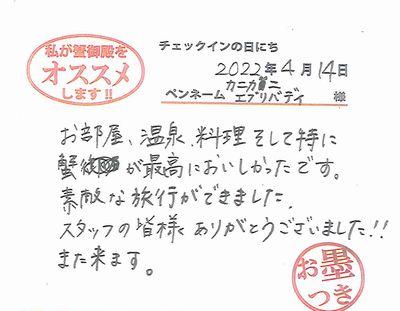 私が蟹御殿を
オススメ
します!!
チェックインの日にち
2022年4月14日
ペンネーム カニカーニ エブリバディ 様
お部屋、温泉、料理そして特に
蟹が最高においしかったです。
素敵な旅行ができました。
スタッフの皆様ありがとうございました!!
また来ます。
お墨
つき